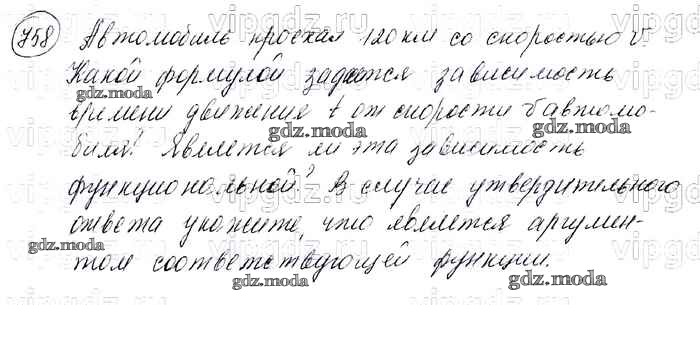 758 Автомобиль проехал 120 км со скоростью v
Какой формулой задается зависимость
времени движения t от скорости v автомо-
биля? Является ли эта зависимость
функциональной? В случае утвердительного
ответа укажите, что является аргумен-
том соответствующей функции.
gdz.moda
gdz.moda
gdz.moda
gdz.moda
gdz.moda
gdz.moda